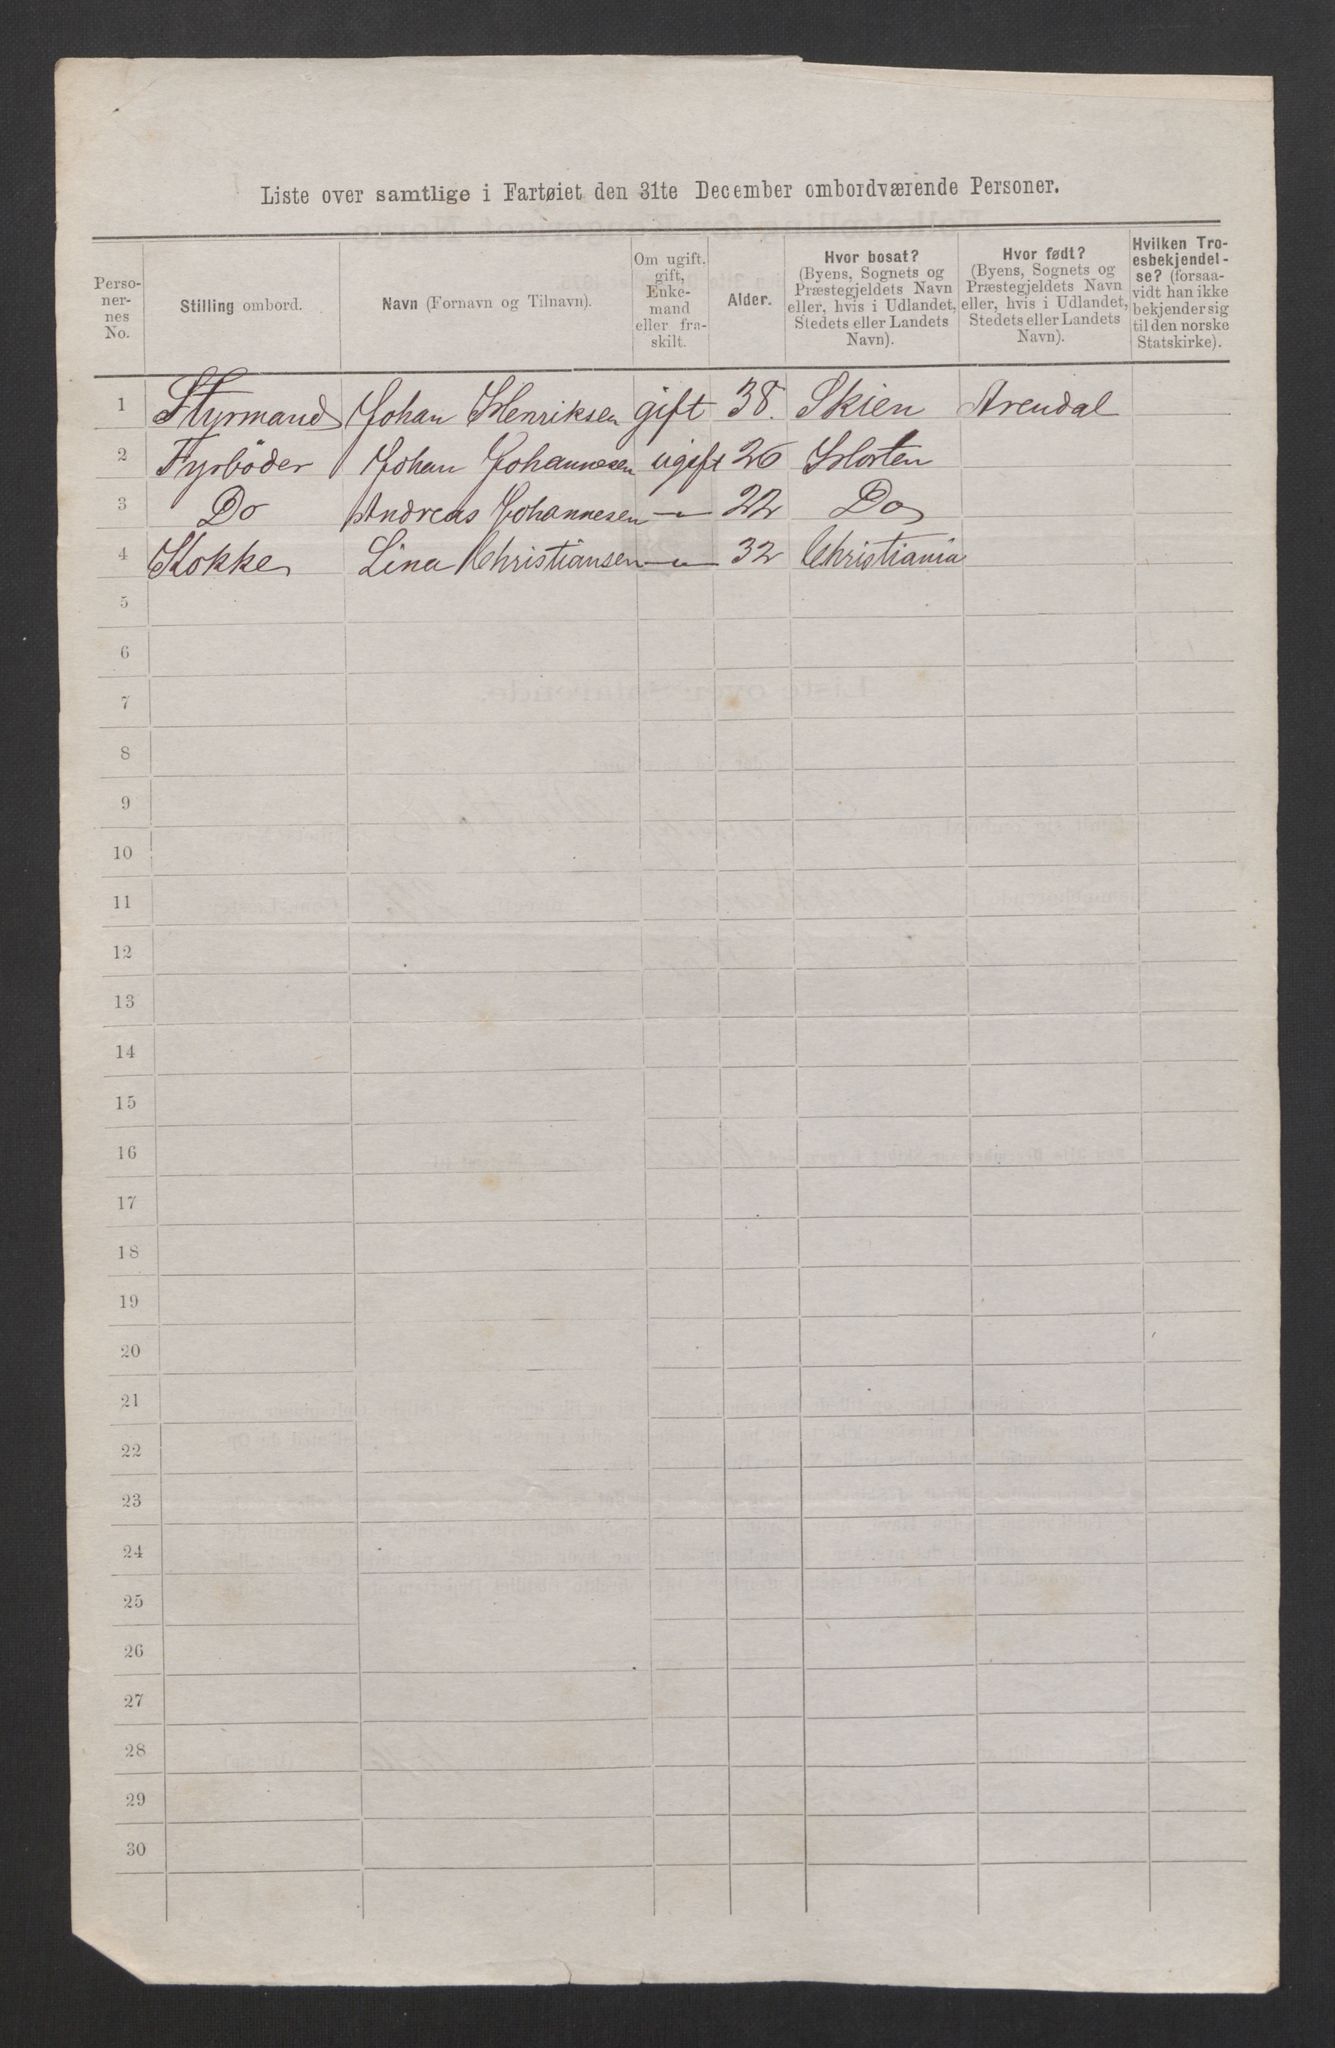 Liste over samtlige i Fartøiet den 31te December ombordværende Personer.
Perso-
ner-
nes
No.
Stilling ombord.
Navn (Fornavn og Tilnavn).
Om ugift,
gift,
Enke-
mand
eller fra-
skilt.
Alder.
Hvor bosat?
(Byens, Sognets og
Præstegjeldets Navn
eller, hvis i Udlandet,
Stedets eller Landets
Navn).
Hvor født?
(Byens, Sognets og
Præstegjeldets Navn
eller, hvis i Udlandet,
Stedets eller Landets
Navn).
Hvilken Tro-
esbekjendel-
se? (forsaa-
vidt han ikke
bekjender sig
til den norske
Statskirke).
1 Styrmand Johan Henriksen gift 38. Skien Arendal
2 Fyrböder Johan Johannesen ugift 26 Horten
3 Do Andreas Johannesen —"— 22 Do
4 Kokke Lina Christiansen —"— 32 Christiania
5
6
7
8
9
10
11
12
13
14
15
16
17
18
19
20
21
22
23
24
25
26
27
28
29
30